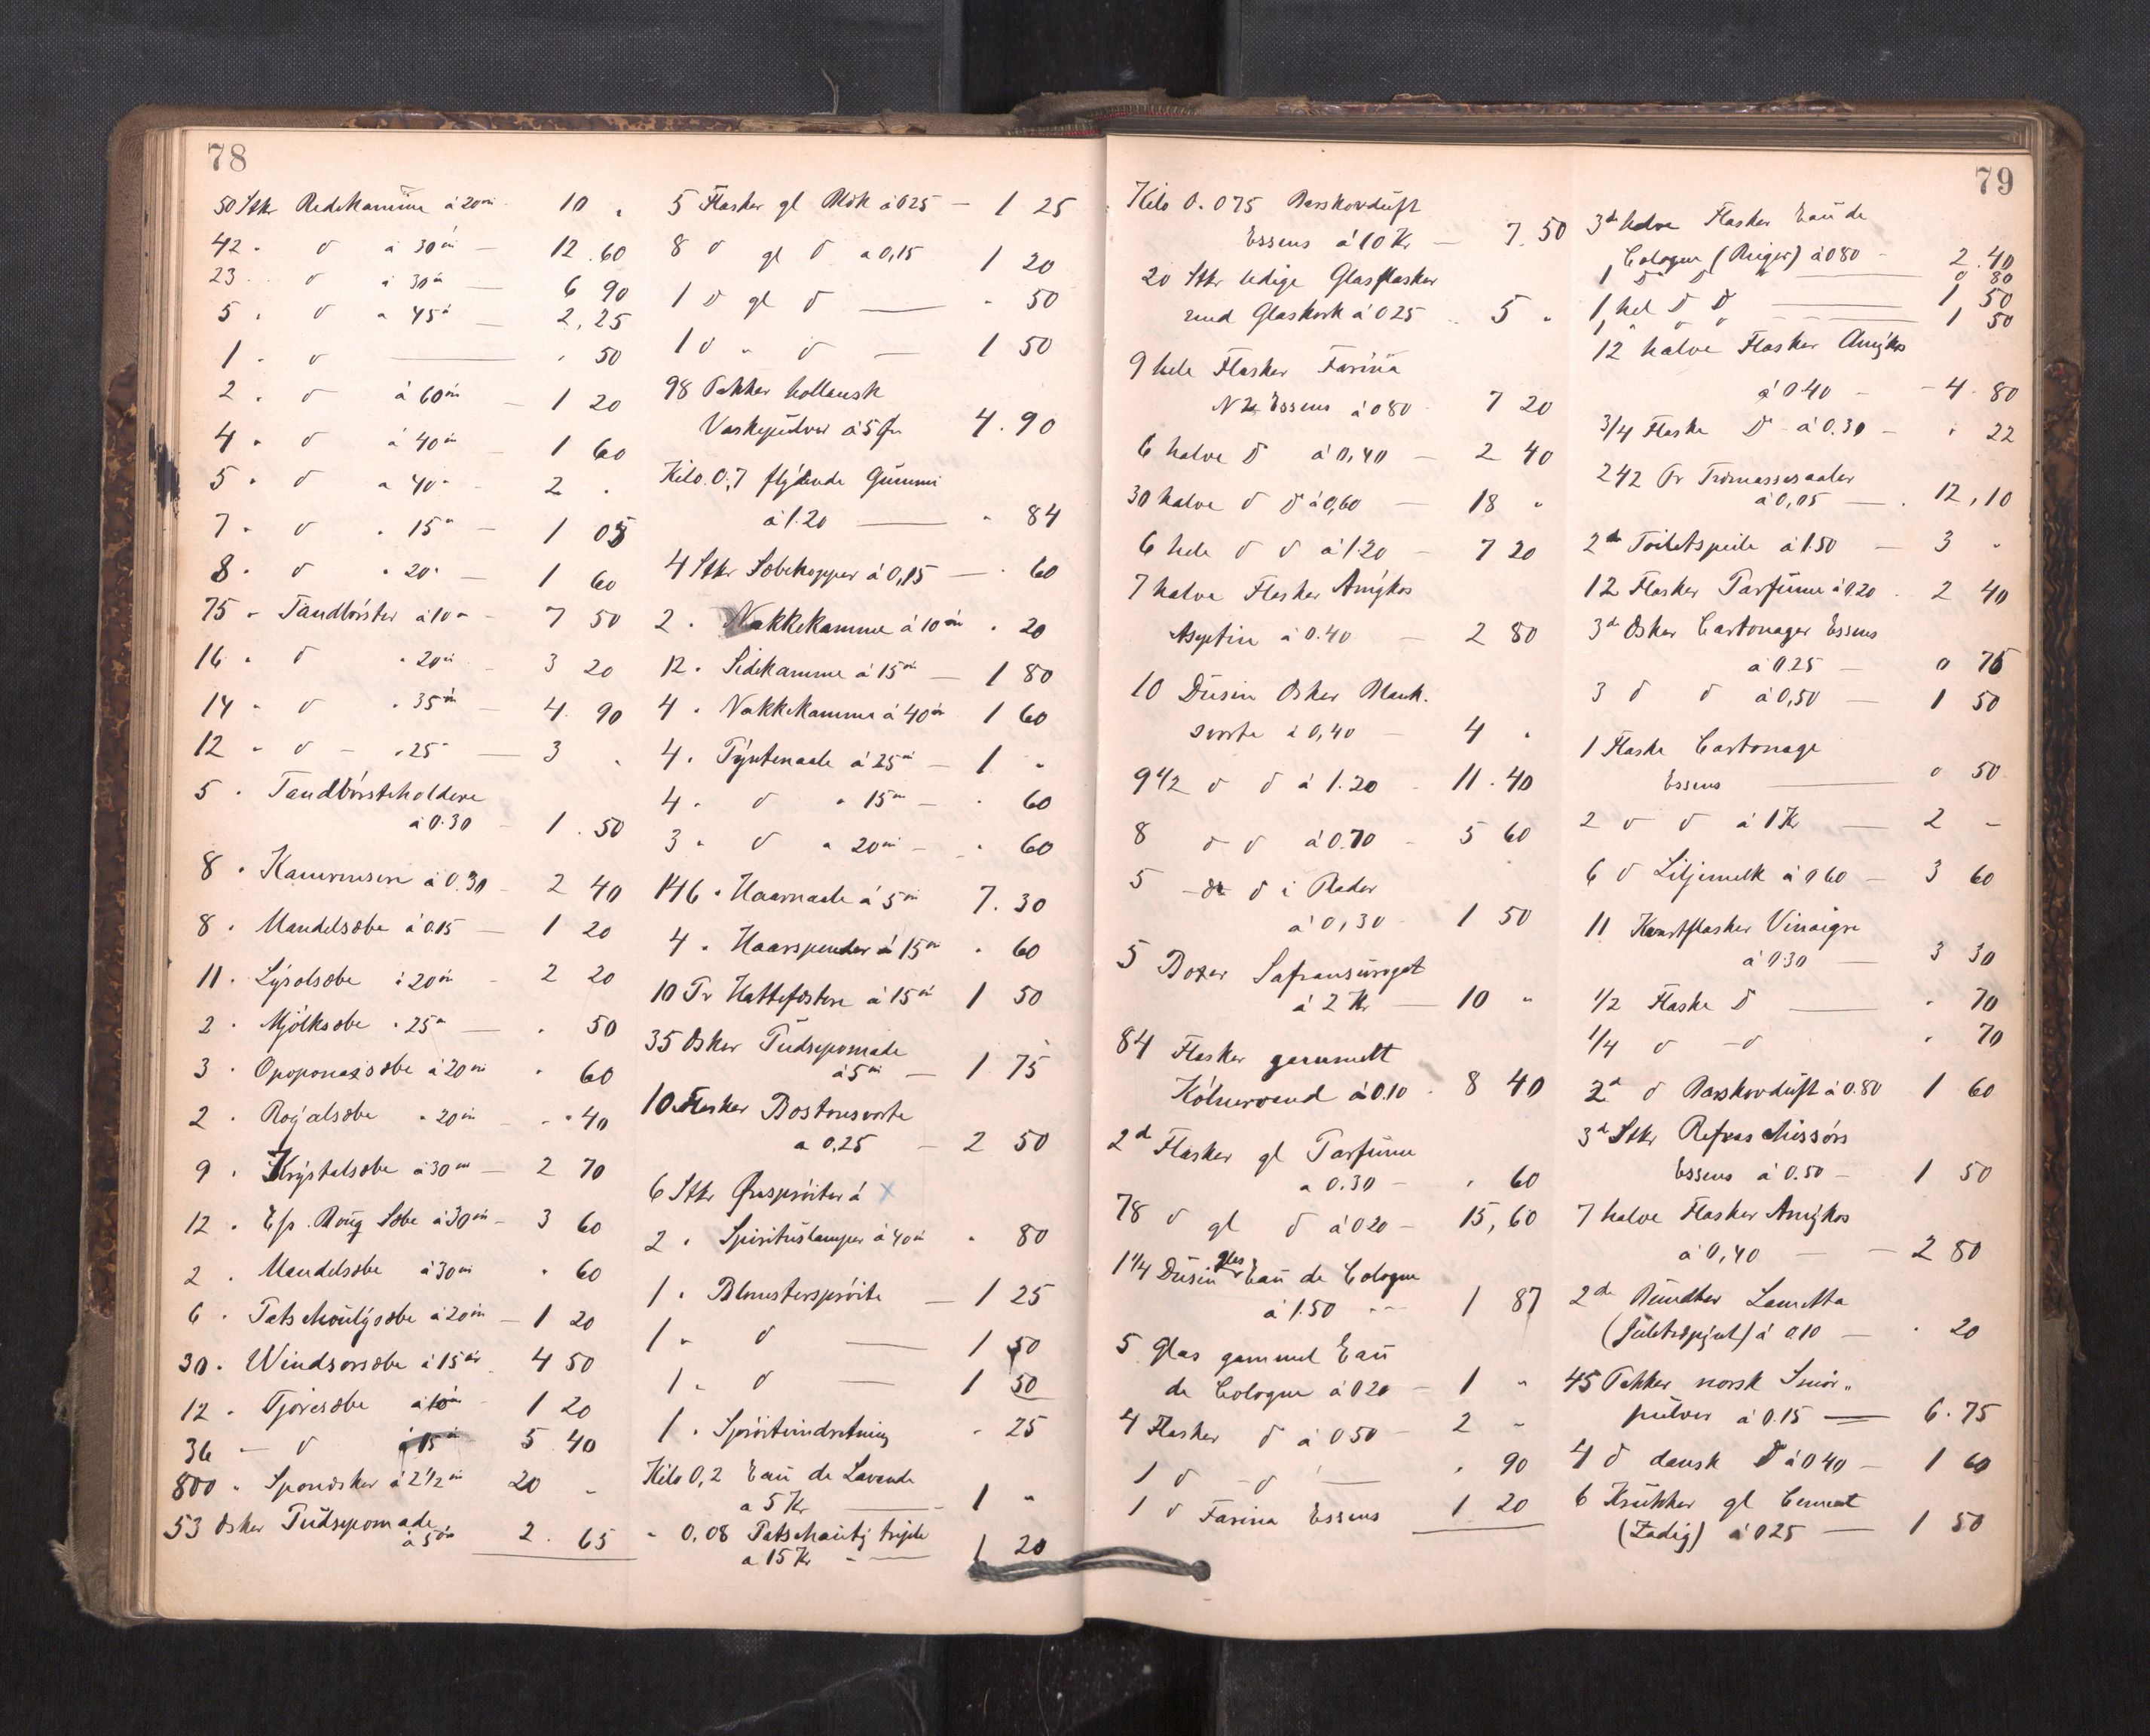 78
50 Stkr Redekamme à 20 øre 10 "
42 " d à 30 ør — 12.60
23 " d à 30 ør — 6 90
5 " d " 45 " — 2,25
1 " d — " 50
2 " d à 60 ør — 1 20
4 " d à 40 " — 1 60
5 " d " 40 " — 2 "
7 " d " 15 " — 1 05
8 " d " 20 " — 1 60
75 " Tandbörster à 10 " — 7 50
16 " d " 20 ør 3 20
14 " d " 35 ør — 4 90
12 " d — " 25 " — 3 "
5 " Tandbörsteholdere
à 0.30 — 1.50
8 " Kamrensere à 0.30 — 2 40
8 " Mandelsæbe à 0.15 — 1 20
11 " Lysolsæbe à 20 ør — 2 20
2 " Mjölksæbe " 25 " — " 50
3 " Opoponaxsæbe à 20 ør " 60
2 " Royalsæbe " 20 ør — " 40
9 " Krystalsæbe à 30 ør — 2 70
12 " Esp. Boug Sæbe à 30 ør — 3 60
2 " Mandelsæbe à 30 ør " 60
6 " Patschoulysæbe à 20 ør — 1 20
30 " Windsorsæbe à 15 ør 4 50
12 " Tjæresæbe à 10 ør 1 20
36 — d à 15 " 5 40
800 " Sponæsker à 2 1/2 ør 20 "
53 Æsker Pudsepomade
à 5 ør 2.65
5 Flasker gl Blæk à 0 25 — 1 25
8 d gl d a 0,15 1 20
1 d gl d — " 50
1 d " d — 1 50
98 Pakker hollansk
Vaskepulver à 5 ør 4.90
Kilo 0.7 flydende Gummi
à 1.20 — " 84
4 Stkr Sæbekopper à 0,15 — " 60
2 " Nakkekamme à 10 ør " 20
12 " Sidekamme à 15 ør — 1 80
4 " Nakkekamme à 40 ør 1 60
4 " Pyntenaale à 25 ør — 1 "
4 " d " 15 ør — " 60
3 " d " 20 ør — " 60
146 " Haarnaale à 5 ør 7.30
4 " Haarspender à 15 ør " 60
10 Pr Hattefæstere à 15 ør 1 50
35 Æsker Pudsepomade
à 5 ør — 1 75
10 Flasker Bostonsverte
a 0,25 — 2 50
6 Stkr Øresprøiter à x
2 " Spirituslamper à 40 ør " 80
1 " Blomstersprøite — 1 25
1 " d — 1 50
1 " d — 1 50
1 " Sprøiteindretning " 25
Kilo 0,2 Eau de Lavende
a 5 Kr — 1 "
" 0,08 Patschouly triple
a 15 Kr — 1 20
79
Kilo 0.075 Barskovduft
Essens à 10 Kr — 7.50
20 Stkr ledige Glasflasker
med Glaskork à 0 25 " 5 "
9 hele Flasker Farina
N 2 Essens à 0 80 7 20
6 halve d à 0,40 — 2 40
30 halve d d à 0,60 — 18 "
6 hele d d à 1.20 — 7 20
7 halve Flasker Amykos
Aseptin à 0.40 — 2 80
10 Dusin Æsker Blank.
sverte à 0,40 — 4 "
9 1/2 d d à 1.20 — 11.40
8 d d à 0.70 — 5 60
5 — d i Rader
à 0,30 — 1 50
5 Boxer Safransurogat
à 2 Kr — 10 "
84 Flasker gammelt
Kölnervand à 0.10 " 8 40
2 d Flasker gl Parfume
a 0.30 — " 60
78 d gl d à 0 20 — 15,60
1 1/4 Dusin glas Eau de Cologne
à 1.50 — 1 87
5 Glas gammel Eau
de Cologne à 0 20 — 1 "
4 Flasker d à 0 50 — 2 "
1 d — d — " 90
1 d Farina Essens 1 20
3 d halve Flasker Eau de
Cologne (Rieger) à 0 80 — 2.40
1 d d 0 80
1 hel d d — 1,50
1 " d " — 1 50
12 halve Flasker Amykos
à 0 40 — 4.80
3/4 Flaske d à 0.30 — " 22
242 Pr Træmassesaaler
à 0,05 — 12,10
2 d Toiletspeile à 1.50 — 3 "
12 Flasker Parfume à 0.20 " 2 40
3 d Æsker Cartonager Essens
a 0 25 — 0 75
3 d d à 0,50 — 1 50
1 Flaske Cartonage
Essens — 0 50
2 d d à 1 Kr — 2 —
6 d Liljemelk à 0 60 — 3 60
11 Kvartflasker Vinaigre
à 0.30 — 3 30
1/2 Flaske d — " 70
1/4 d — d " 70
2 d d Barskovduft à 0.80 1 60
3 d Stkr
Essens à 0.50 — 1 50
7 halve Flasker Amykos
à 0,40 — 2 80
2 d Bundter Lametta
(Juletrepynt) à 0.10 — " 20
45 Pakker norsk Smör"
pulver à 0.15 — 6.75
4 d dansk d à 0 40 — 1 60
6 Krukker gl Cement
(Zadig) à 0 25 — 1 50